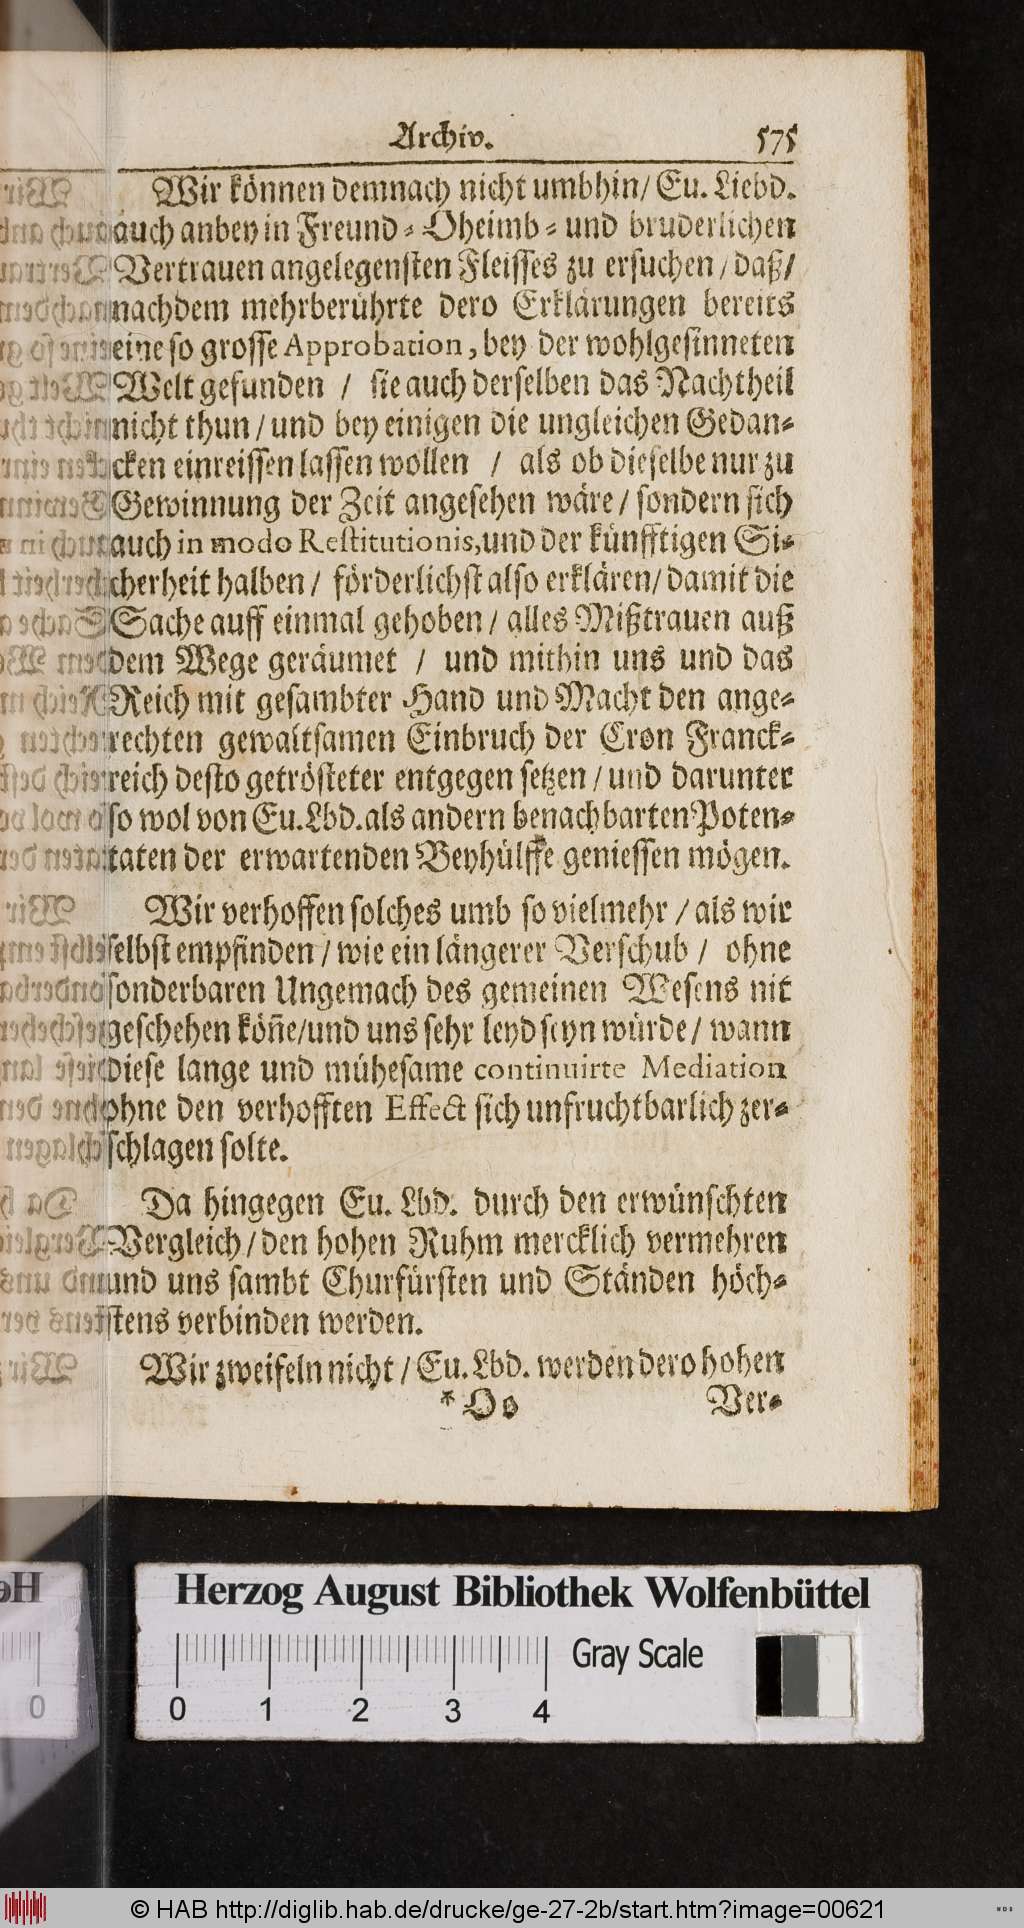 Archiv. 575
Wir können demnach nicht umbhin/ Eu. Liebd.
auch anbey in Freund- Oheimb- und bruderlichen
Vertrauen angelegensten Fleisses zu ersuchen/ daß/
nachdem mehrberührte dero Erklärungen bereits
eine so grosse Approbation, bey der wohlgesinneten
Welt gefunden / sie auch derselben das Nachtheil
nicht thun/ und bey einigen die ungleichen Gedan-
cken einreissen lassen wollen / als ob dieselbe nur zu
Gewinnung der Zeit angesehen wäre/ sondern sich
auch in modo Restitutionis, und der künfftigen Si-
cherheit halben/ förderlichst also erklären/ damit die
Sache auff einmal gehoben/ alles Mißtrauen auß
dem Wege geräumet / und mithin uns und das
Reich mit gesambter Hand und Macht den ange-
rechten gewaltsamen Einbruch der Cron Franck-
reich desto getrösteter entgegen setzen/ und darunter
so wol von Eu. Lbd. als andern benachbarten Poten-
taten der erwartenden Beyhülffe geniessen mögen.
Wir verhoffen solches umb so vielmehr/ als wir
selbst empfinden/ wie ein längerer Verschub/ ohne
sonderbaren Ungemach des gemeinen Wesens nit
geschehen köñe/ und uns sehr leyd seyn würde/ wann
diese lange und mühesame continuirte Mediation
ohne den verhofften Effect sich unfruchtbarlich zer-
schlagen solte.
Da hingegen Eu. Lbd. durch den erwünschten
Vergleich/ den hohen Ruhm mercklich vermehren
und uns sambt Churfürsten und Ständen höch-
stens verbinden werden.
Wir zweifeln nicht/ Eu. Lbd. werden dero hohen
* Oo Ver-
Herzog August Bibliothek Wolfenbüttel
Gray Scale
0 1 2 3 4
0
© HAB http://diglib.hab.de/drucke/ge-27-2b/start.htm?image=00621